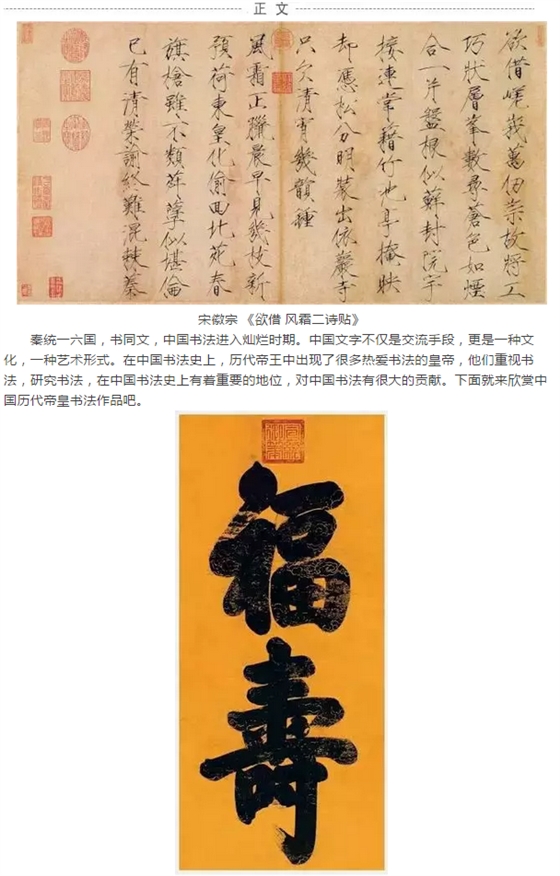 正 文
欲借嵯峨萬仞崇故將工
巧狀層峯數尋蒼色如煙
合一片盤根似蘚封院宇
接連常藉竹池亭掩映
却憑松分明裝出依巖寺
只欠清宵幾韻鍾
風霜正臘晨早見幾枝新
預荷東皇化偷回北苑春
旗槍雖不類孽似堪倫
已有清榮諭終難混棘蓁
宋徽宗 《欲借 风霜二诗贴》
秦统一六国，书同文，中国书法进入灿烂时期。中国文字不仅是交流手段，更是一种文
化，一种艺术形式。在中国书法史上，历代帝王中出现了很多热爱书法的皇帝，他们重视书
法，研究书法，在中国书法史上有着重要的地位，对中国书法有很大的贡献。下面就来欣赏中
国历代帝皇书法作品吧。
福
壽